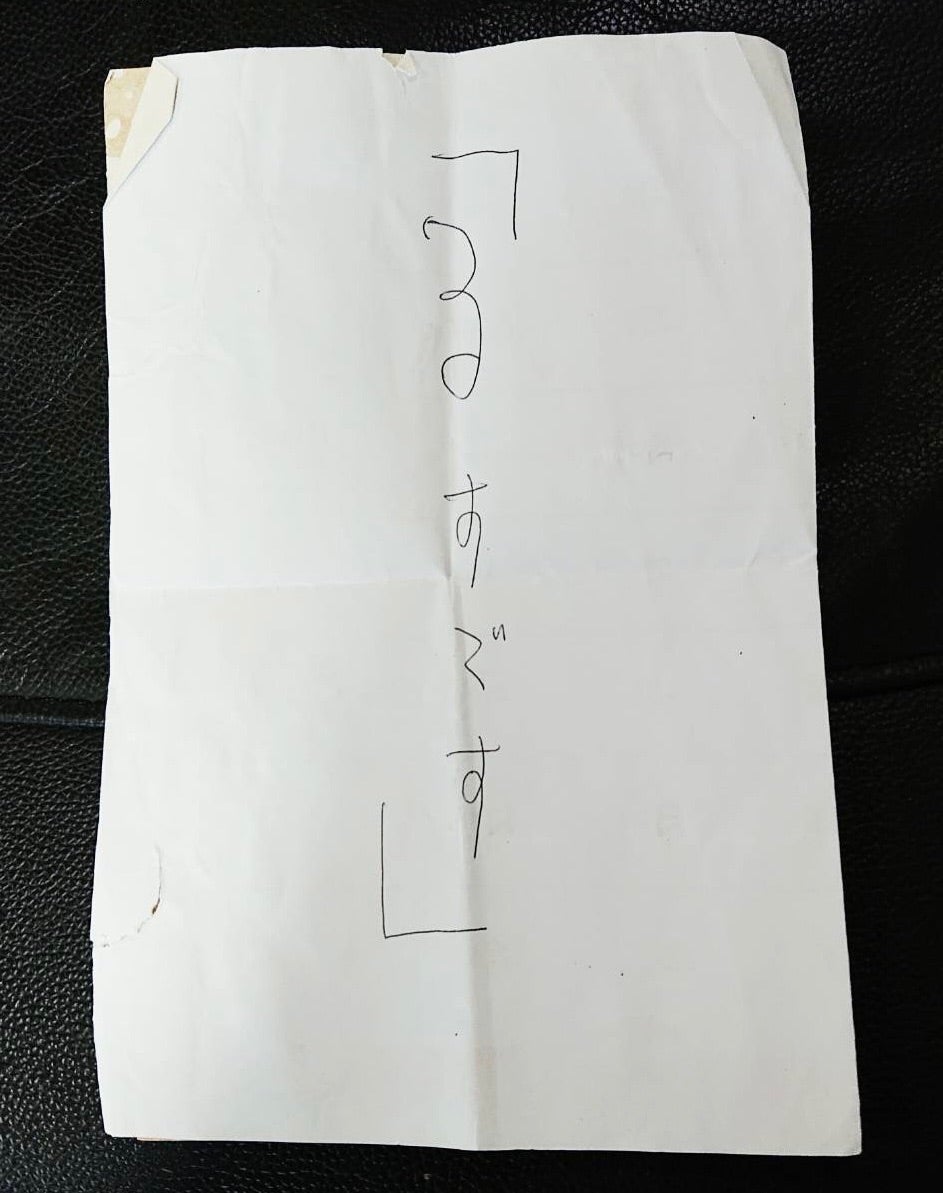 「るすです」